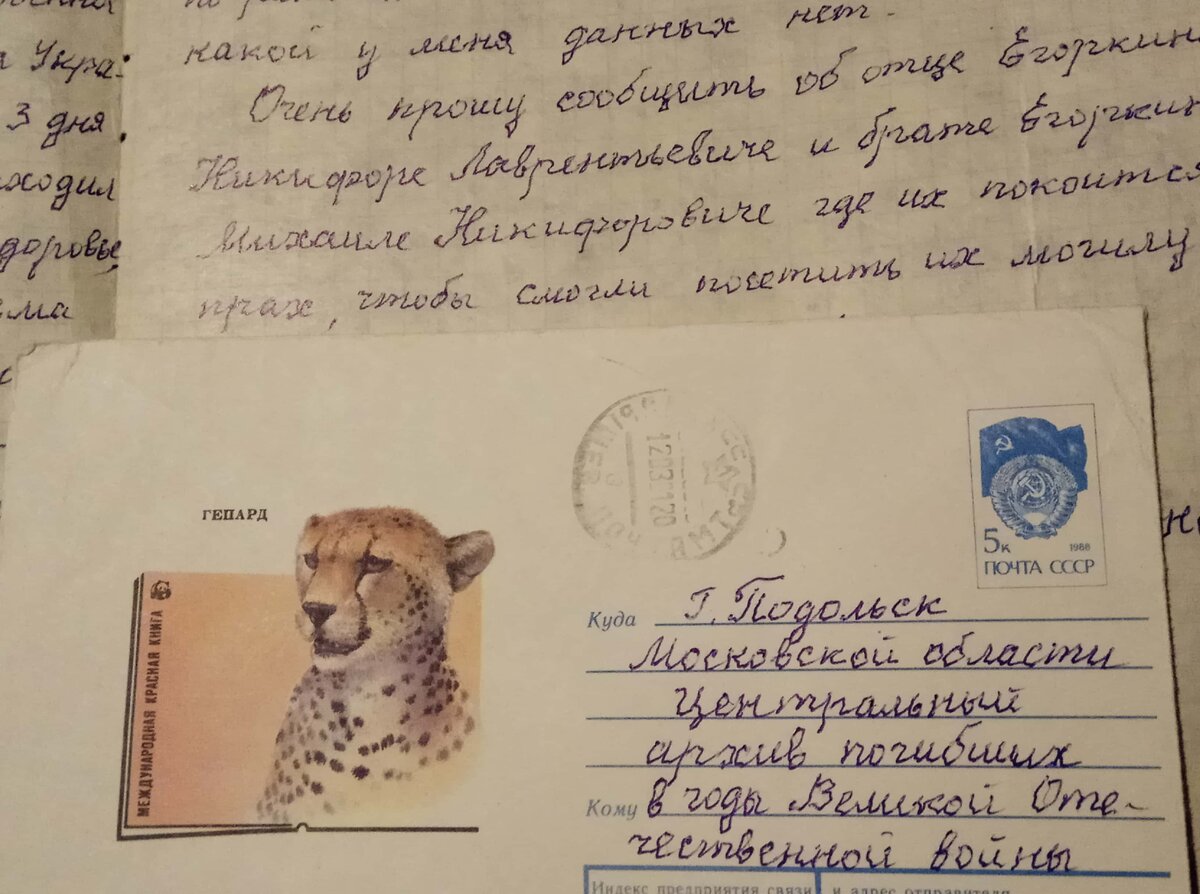 Укра-
3 дня.
какой у меня данных нет.
Очень прошу сообщить об отце Егоркин
Никифоре Лаврентьевиче и брате Егоркин
Михаиле Никифоровиче где их покоится
прах, чтобы смогли посетить их могилу
ГЕПАРД
МЕЖДУНАРОДНАЯ КРАСНАЯ КНИГА
5к
1988
ПОЧТА СССР
Куда г. Подольск
Московской области
Центральный
архив погибших
Кому в годы Великой Оте-
чественной войны
Индекс предприятия связи и адрес отправителя